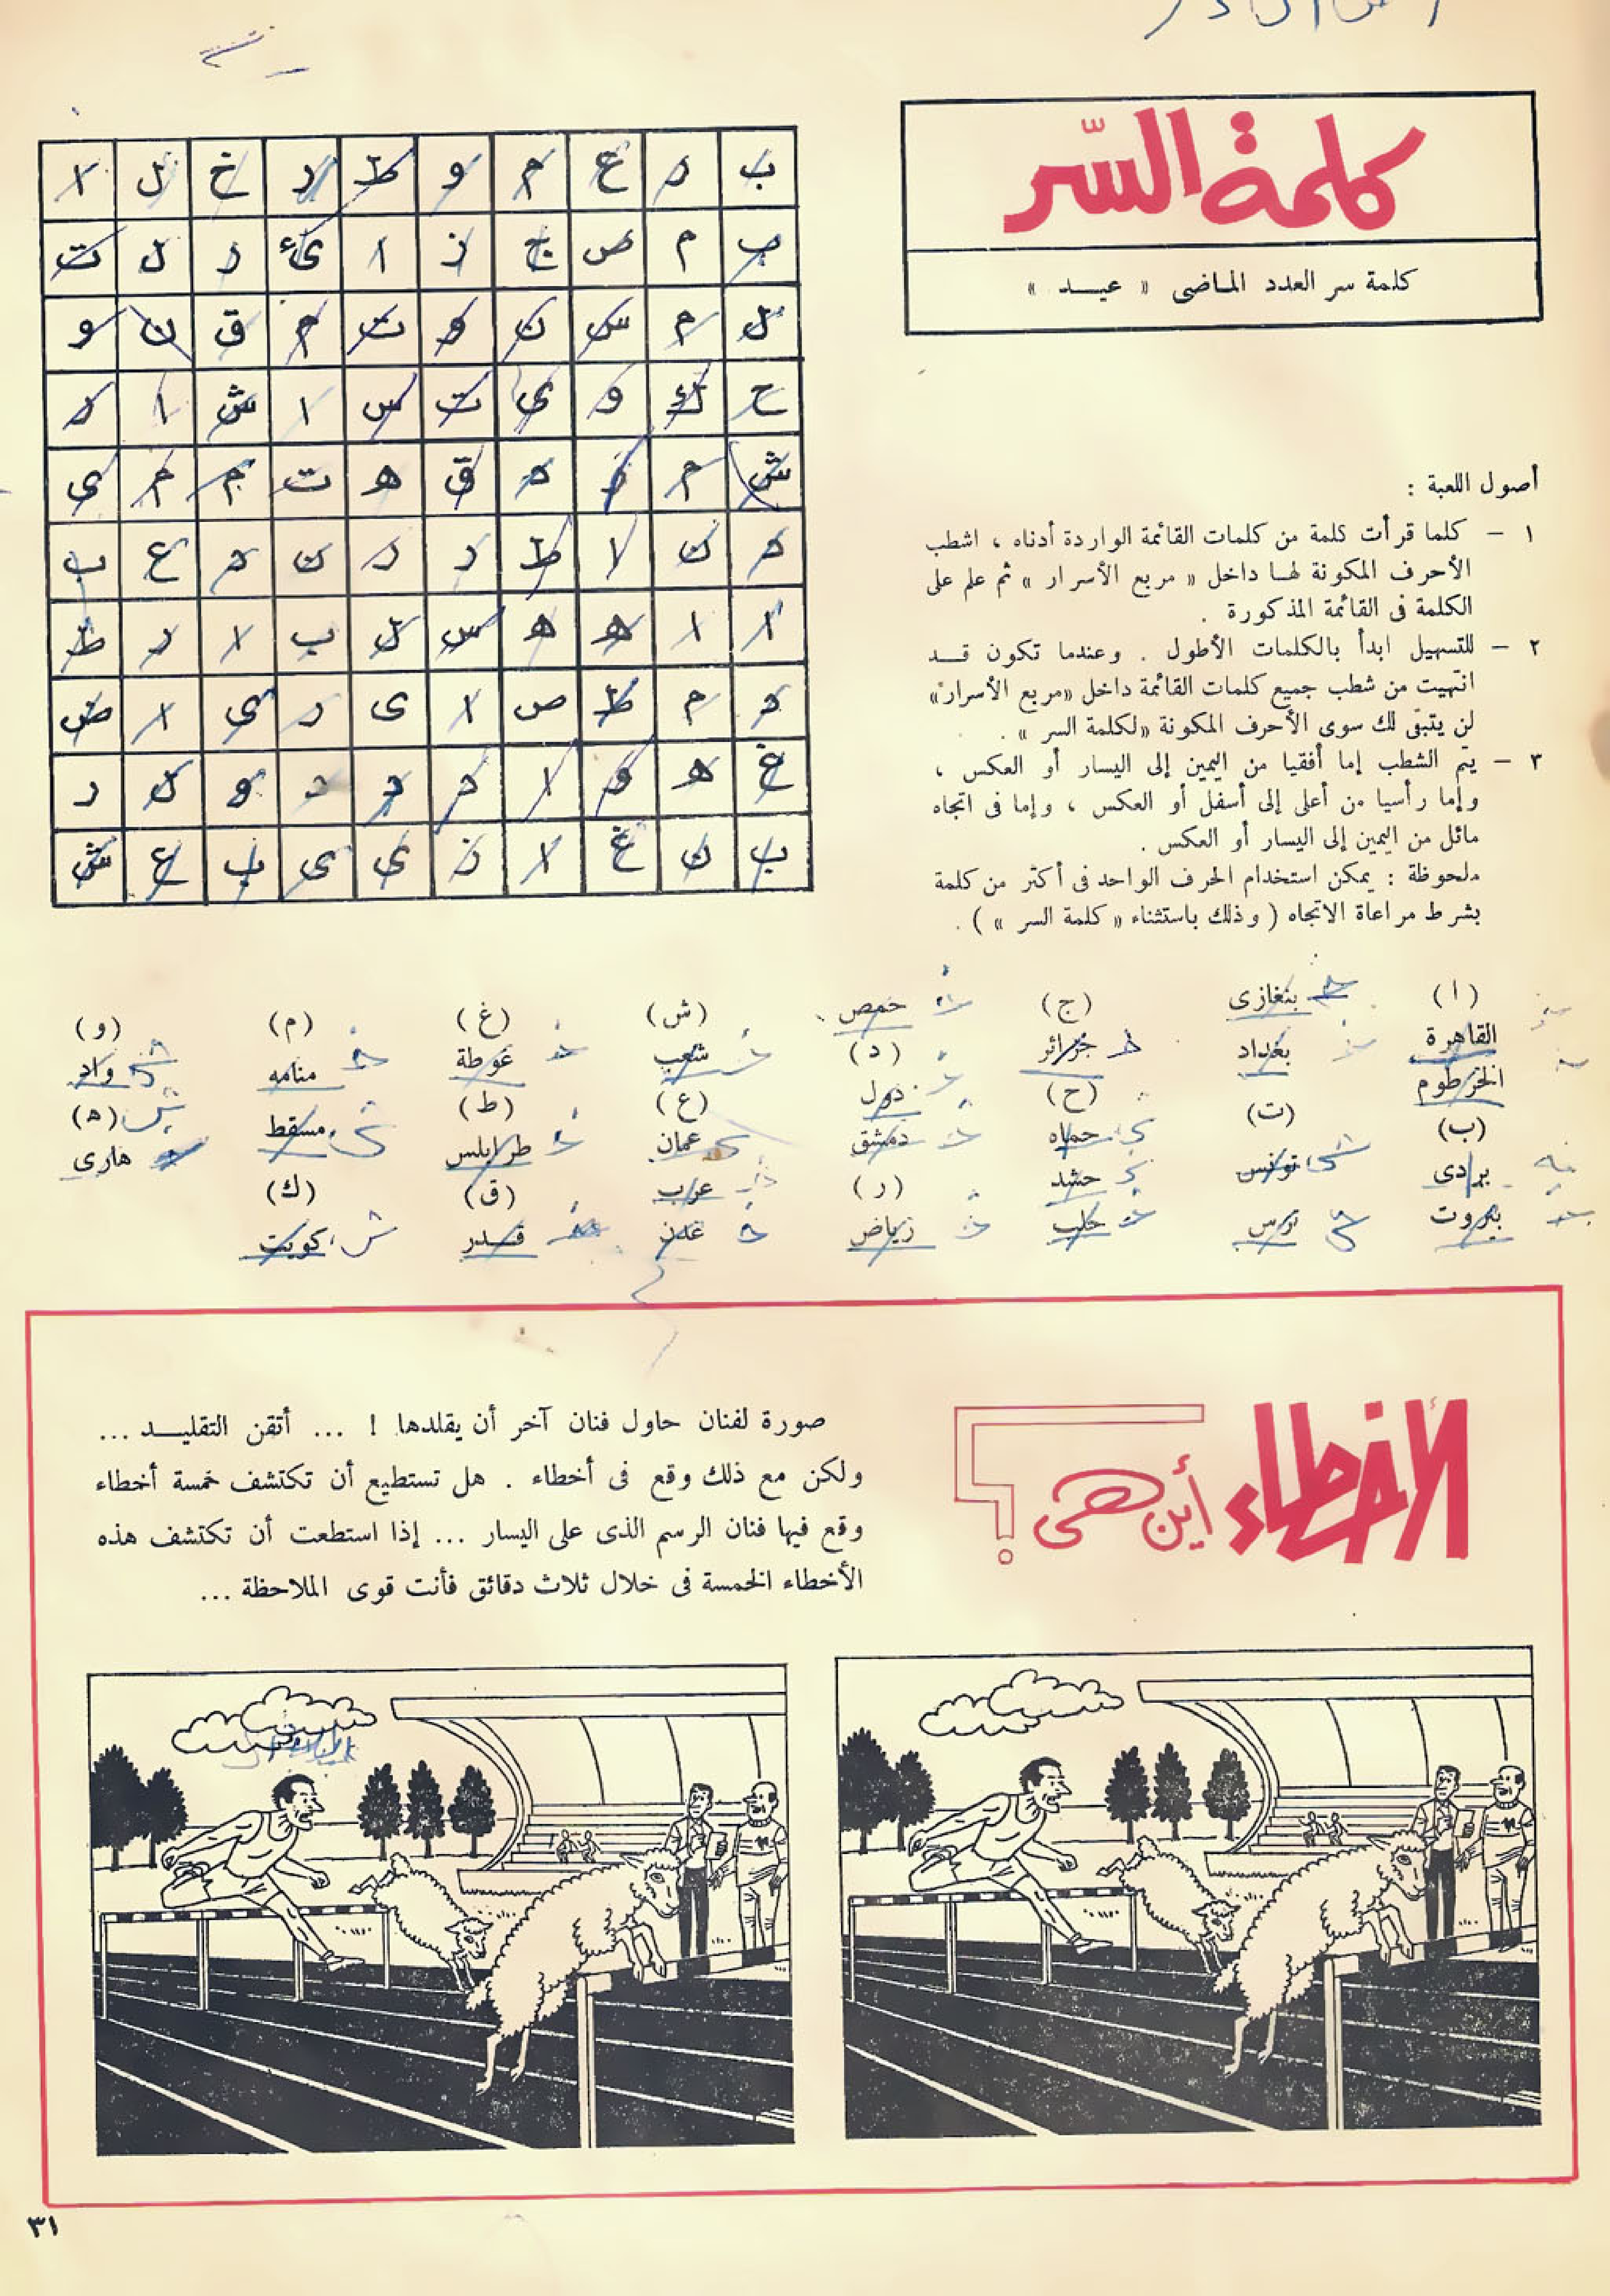 كلمة السّر
كلمة سر العدد الماضى « عيد »
ب ر ع م و ط ر خ ل ا
ب م ص ج ز ا ئ ر ل ت
ل م س ن و ت م ق ن و
ح ك و ى ت س ا ش ا ر
ش م ر د ق ه ت م م ى
د ن ا ط ر ر ن د ع ب
ا ا ه ه س ل ب ا ر ط
د م ط ص ا ى ر ى ا ض
غ ه و ا د د د و ل ر
ب ن غ ا ز ى ى ب ع ش
أصول اللعبة :
١ – كلما قرأت كلمة من كلمات القائمة الواردة أدناه ، اشطب
الأحرف المكونة لها داخل « مربع الأسرار » ثم علم على
الكلمة فى القائمة المذكورة .
٢ – للتسهيل ابدأ بالكلمات الأطول . وعندما تكون قد
انتهيت من شطب جميع كلمات القائمة داخل «مربع الأسرار»
لن يتبقى لك سوى الأحرف المكونة «لكلمة السر » .
٣ – يتم الشطب إما أفقيا من اليمين إلى اليسار أو العكس ،
وإما رأسيا من أعلى إلى أسفل أو العكس ، وإما فى اتجاه
مائل من اليمين إلى اليسار أو العكس .
ملحوظة : يمكن استخدام الحرف الواحد فى أكثر من كلمة
بشرط مراعاة الاتجاه ( وذلك باستثناء « كلمة السر » ) .
( ا )
القاهرة
الخرطوم
( ب )
بردى
بيروت
بنغازى
بغداد
( ت )
تونس
ترس
( ج )
جزائر
( ح )
حماه
حشد
حلب
حمص
( د )
دول
دمشق
( ر )
رياض
( ش )
شعب
( ع )
عمان
عرب
عدن
( غ )
غوطة
( ط )
طرابلس
( ق )
قدر
( م )
منامه
مسقط
( ك )
كويت
( و )
واد
( ه )
هارى
الأخطاء أين هى ؟
صورة لفنان حاول فنان آخر أن يقلدها ! ... أتقن التقليد ...
ولكن مع ذلك وقع فى أخطاء . هل تستطيع أن تكتشف خمسة أخطاء
وقع فيها فنان الرسم الذى على اليسار ... إذا استطعت أن تكتشف هذه
الأخطاء الخمسة فى خلال ثلاث دقائق فأنت قوى الملاحظة ...
٣١